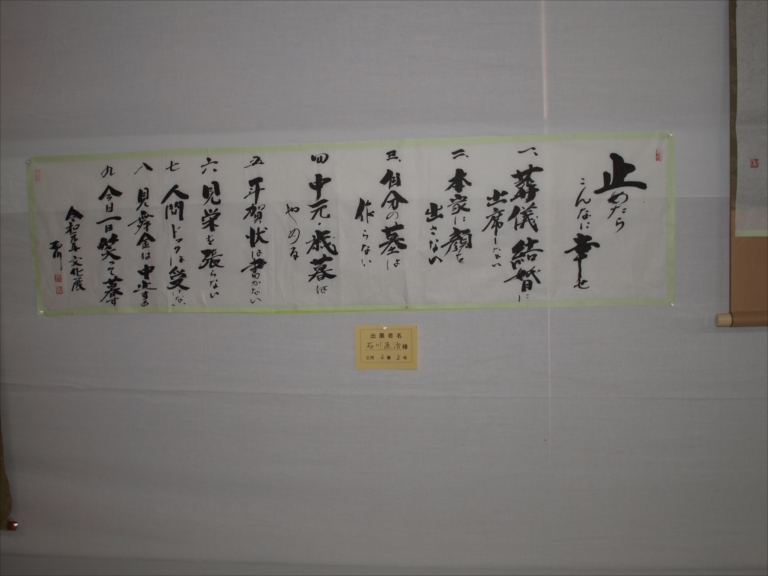 止めたら
こんなに幸せ
一、葬儀 結婚に
出席しない
二、本家に顔を
出さない
三、自分の墓は
作らない
四 中元・歳暮は
やめる
五 年賀状は書かない
六 見栄を張らない
七 人間ドックは受けない
八 見舞金は中止する
九 今日一日笑って暮す
令和五年文化展
出展者名
石川
様